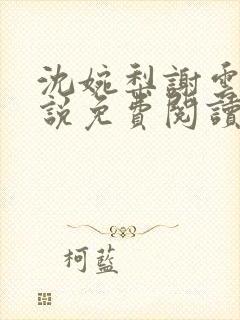 沈婉梨謝雲
說免費閱讀
柯藍